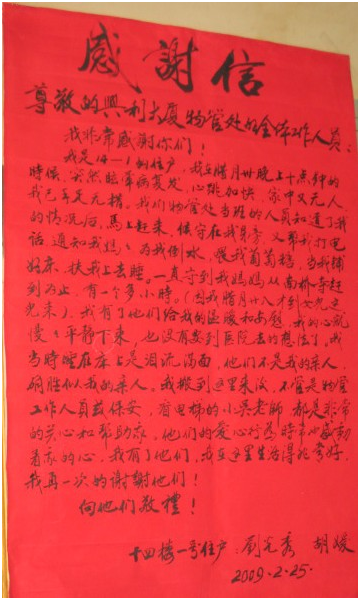 感謝信
尊敬的興利大厦物管处的全体工作人员：
我非常感谢你们！
我是14-1的住户，我在腊月卅晚上十点钟的
时候，突然脑常病复发，心跳加快，家中又无人，
我已手足无措。我们物管处当班的人员知道了我
的情况后，馬上赶来，俟守在我身旁，又帮我打电
话通知我妈，为我倒水，喂我葡萄糖，当我铺
好床，扶我上去睡。一直守到我妈妈从南桥寺赶
到为止，有一个多小時。(因我腊月廿八才到女儿这
兜来)，我有了他们给我的温暖和安慰，我的心就
慢慢平静下来，也没有要到医院去的想法了，我
当時睡在床上是泪流满面，他们不是我的亲人，
胜似我的亲人。我搬到这里来后，不管是物管
工作人员或保安，有电梯的小吴老師，都是非常
的关心和帮助我。他们的爱心行為時常也感動
着我的心，我有了他们，我在这里生活得非常好，
我再一次的谢谢他们！
向他们敬禮！
十四楼一号住户：劉光秀 胡媛
2009.2.25.